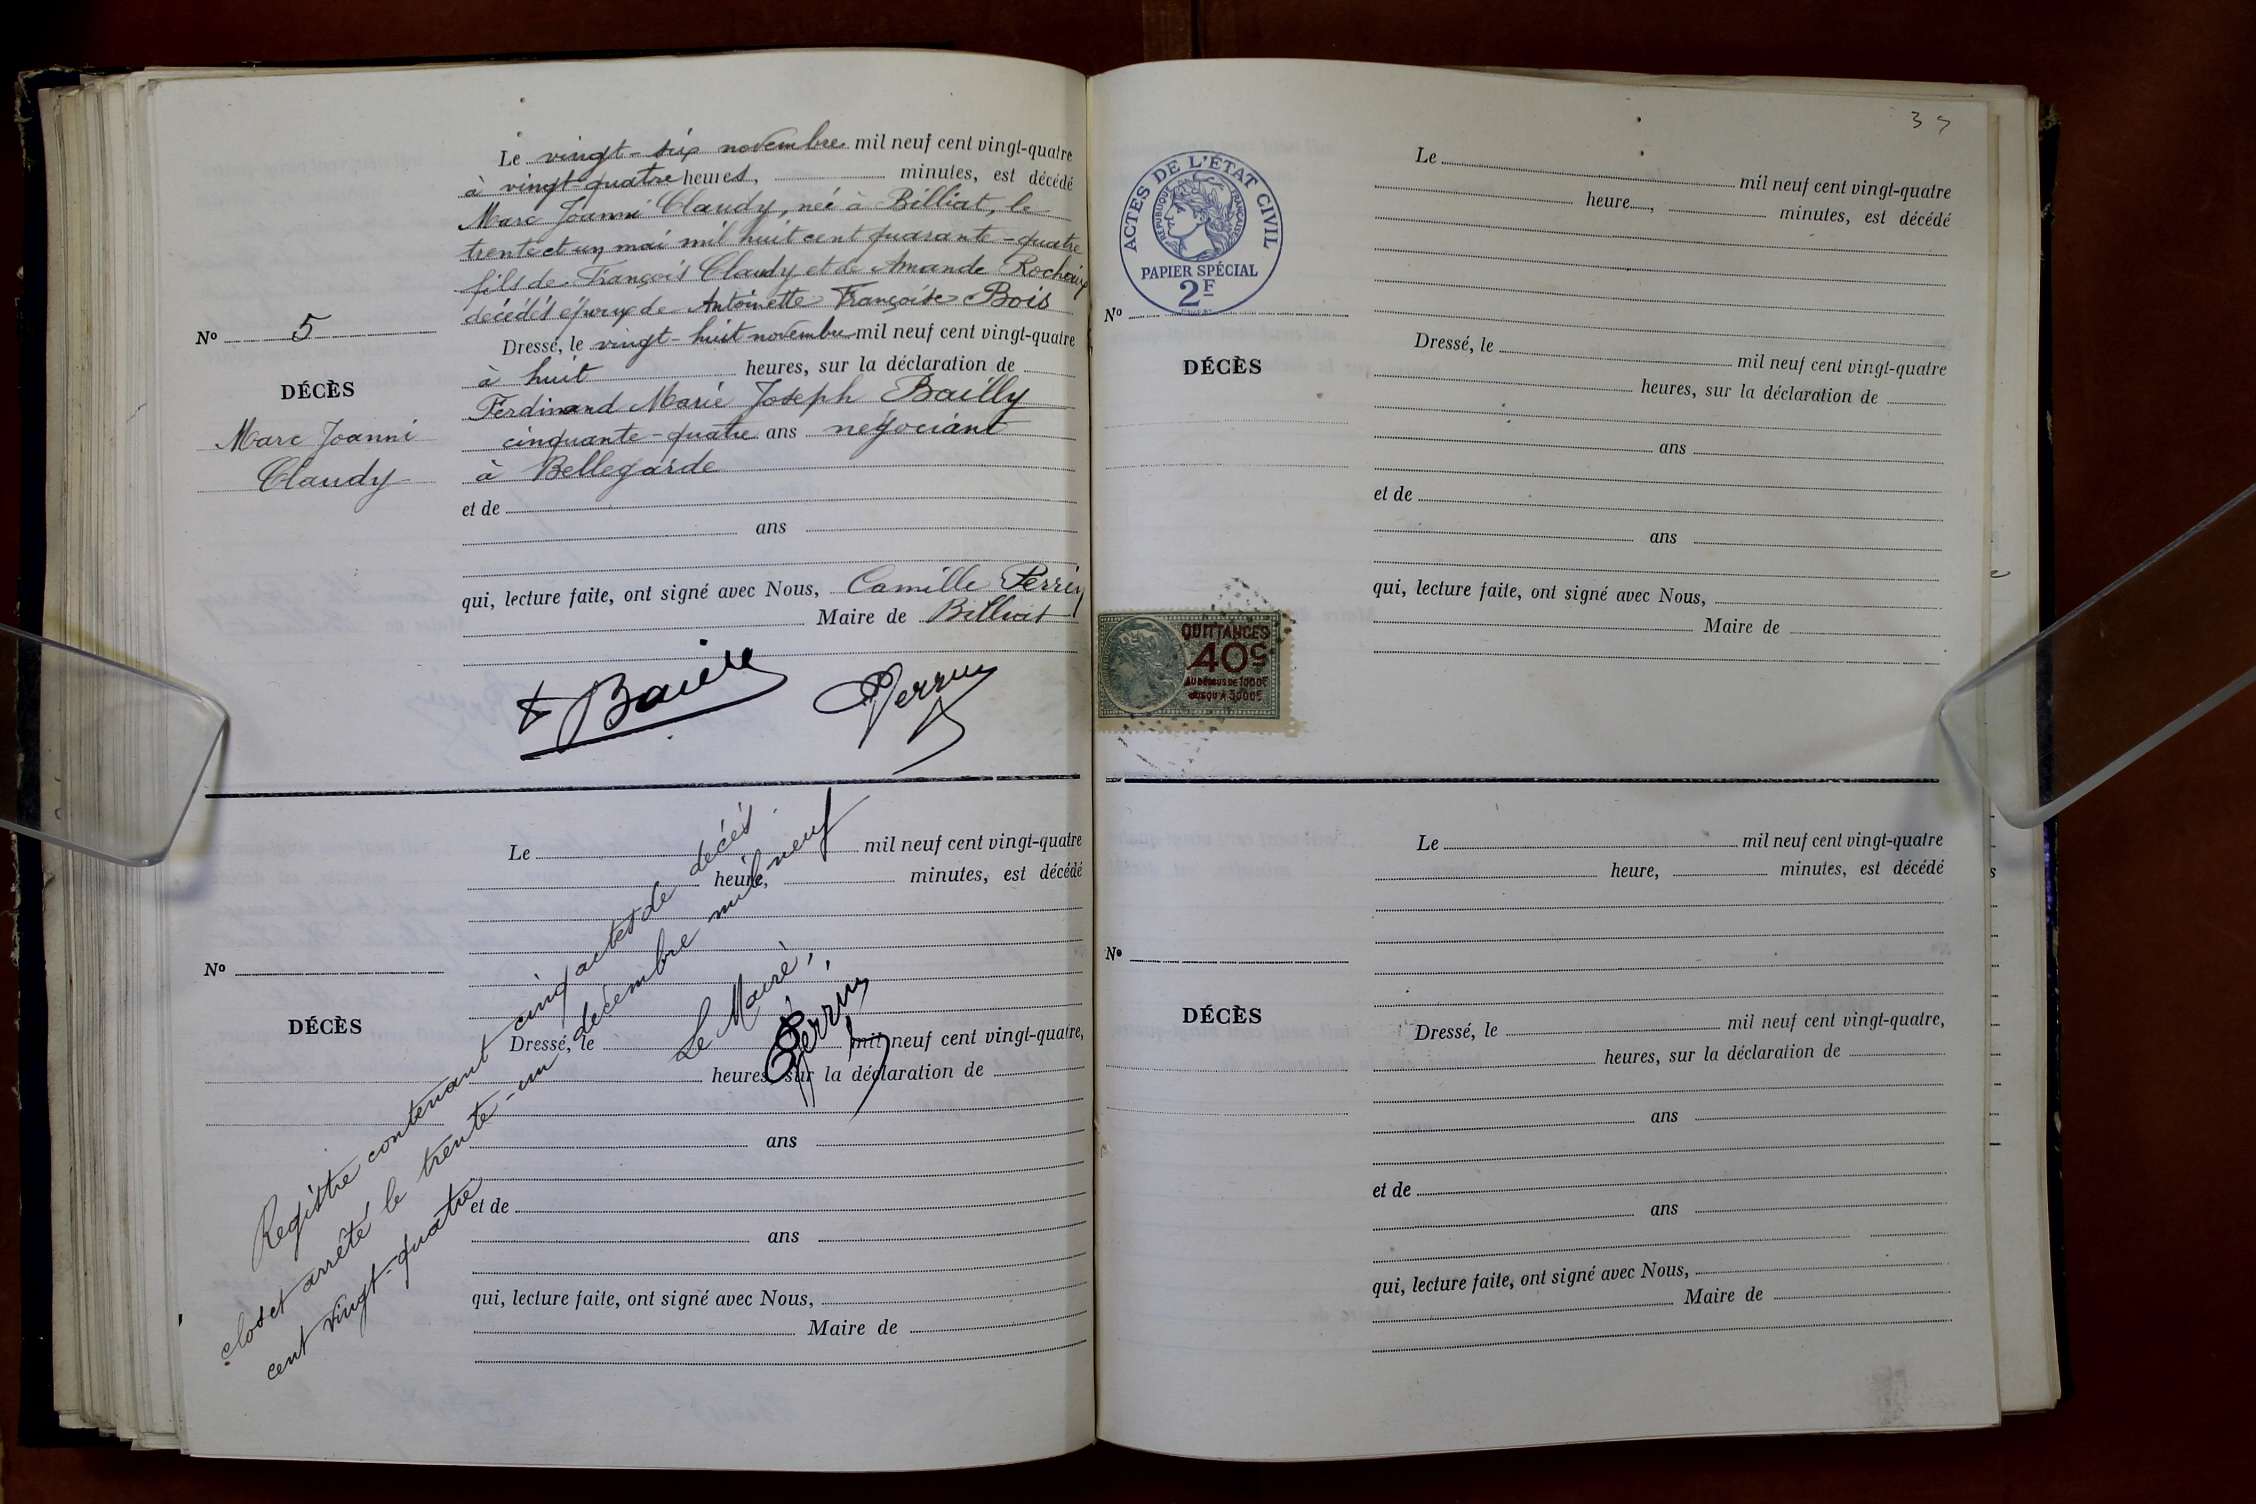 Le vingt-six novembre mil neuf cent vingt-quatre
à vingt-quatre heures, minutes, est décédé
Marc Joanni Claudy, né à Billiat, le
trente et un mai mil huit cent quarante-quatre
fils de François Claudy et de Amande Rochaix
décédés époux de Antoinette Françoise Bois
No 5
Dressé, le vingt-huit novembre mil neuf cent vingt-quatre
à huit heures, sur la déclaration de
DÉCÈS
Ferdinand Marie Joseph Bailly
Marc Joanni
cinquante-quatre ans négociant
Claudy
à Bellegarde
et de
ans
qui, lecture faite, ont signé avec Nous, Camille Perrin
Maire de Billiat
Perrin
Le mil neuf cent vingt-quatre
heure, minutes, est décédé
No
DÉCÈS
Dressé, le mil neuf cent vingt-quatre,
heures, sur la déclaration de
ans
et de
ans
qui, lecture faite, ont signé avec Nous,
Maire de
Registre contenant cinq actes de décès
clos et arrêté le trente-un décembre mil neuf
cent vingt-quatre
Le Maire,
Perrin
ACTES DE L'ÉTAT CIVIL
RÉPUBLIQUE FRANÇAISE
PAPIER SPÉCIAL
2F
Le mil neuf cent vingt-quatre
heure, minutes, est décédé
No
Dressé, le mil neuf cent vingt-quatre
DÉCÈS
heures, sur la déclaration de
ans
et de
ans
qui, lecture faite, ont signé avec Nous,
Maire de
QUITTANCES
40c
AU DESSUS DE 1000F
JUSQU'A 3000F
Le mil neuf cent vingt-quatre
heure, minutes, est décédé
No
DÉCÈS
Dressé, le mil neuf cent vingt-quatre,
heures, sur la déclaration de
ans
et de
ans
qui, lecture faite, ont signé avec Nous,
Maire de